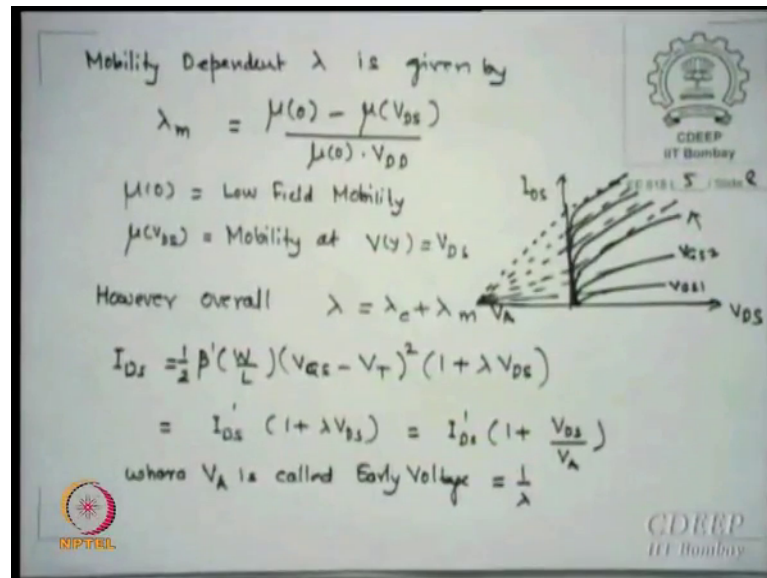 Mobility Dependent λ is given by
λm = μ(0) - μ(VDS) / μ(0) · VDD
μ(0) = Low Field Mobility
μ(VDS) = Mobility at V(y) = VDS
However overall λ = λc + λm
IDS = 1/2 β' (W/L) (VGS - VT)² (1 + λ VDS)
= I'DS (1 + λ VDS) = I'DS (1 + VDS/VA)
where VA is called Early Voltage = 1/λ
CDEEP
IIT Bombay
5 / Slide
IDS
VGS2
VGS1
VA
VDS
NPTEL
CDEEP
IIT Bombay